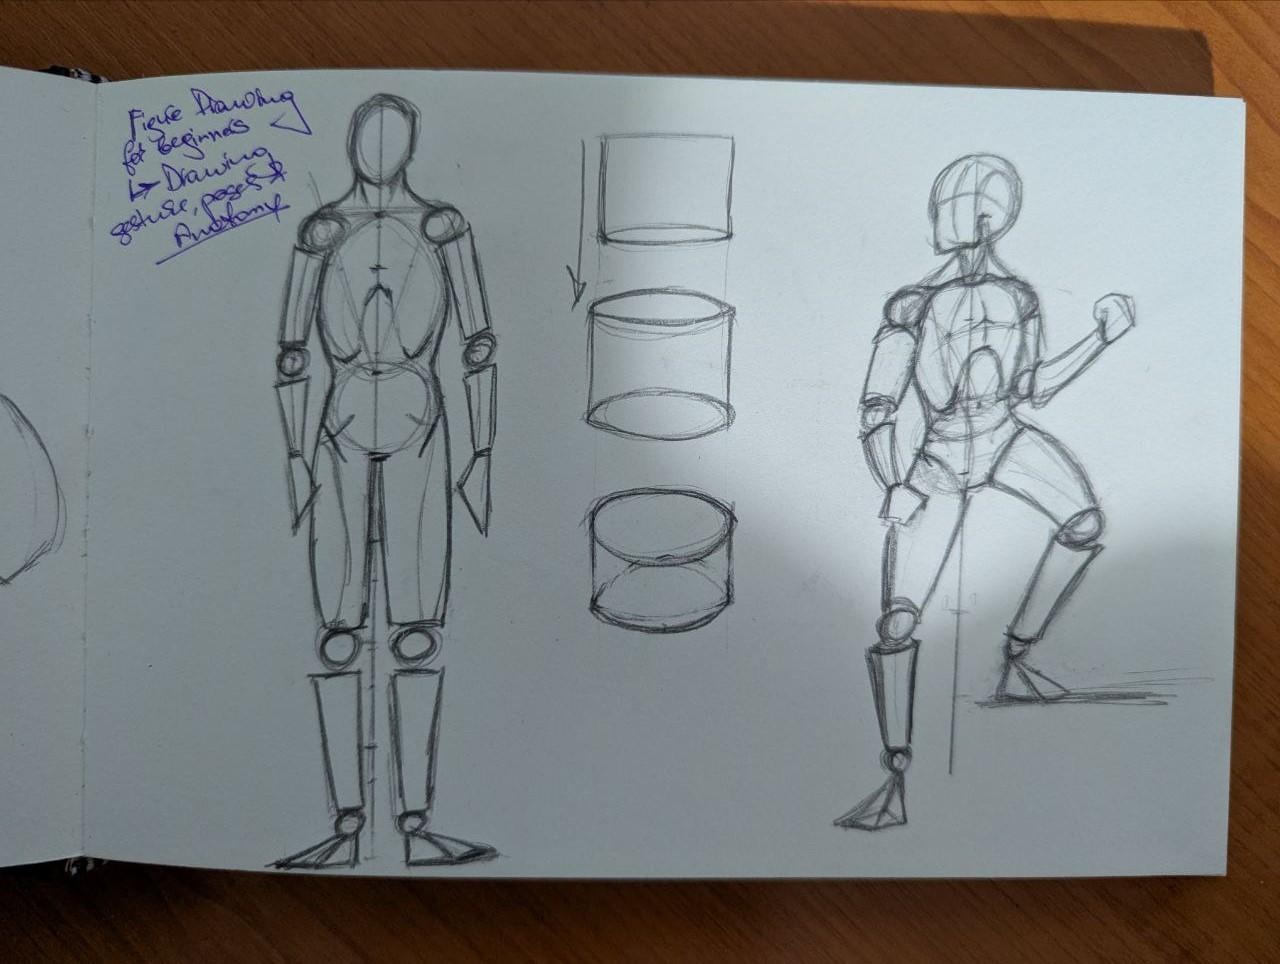 Figure Drawing
for beginners
↳ Drawing
gesture, poses &
Anatomy